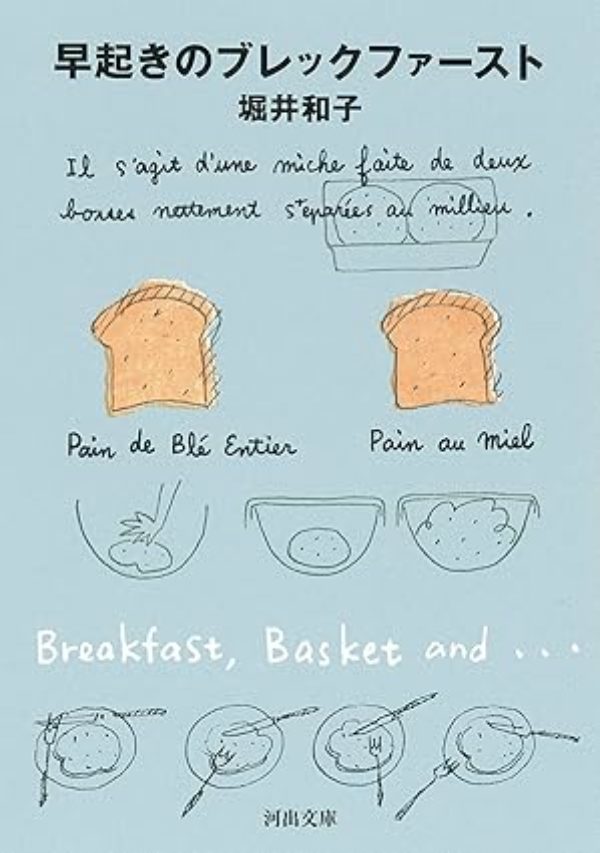 早起きのブレックファースト
堀井和子
Il s'agit d'une miche faite de deux
bosses nettement séparées au millieu.
Pain de Blé Entier
Pain au miel
Breakfast, Basket and ...
河出文庫